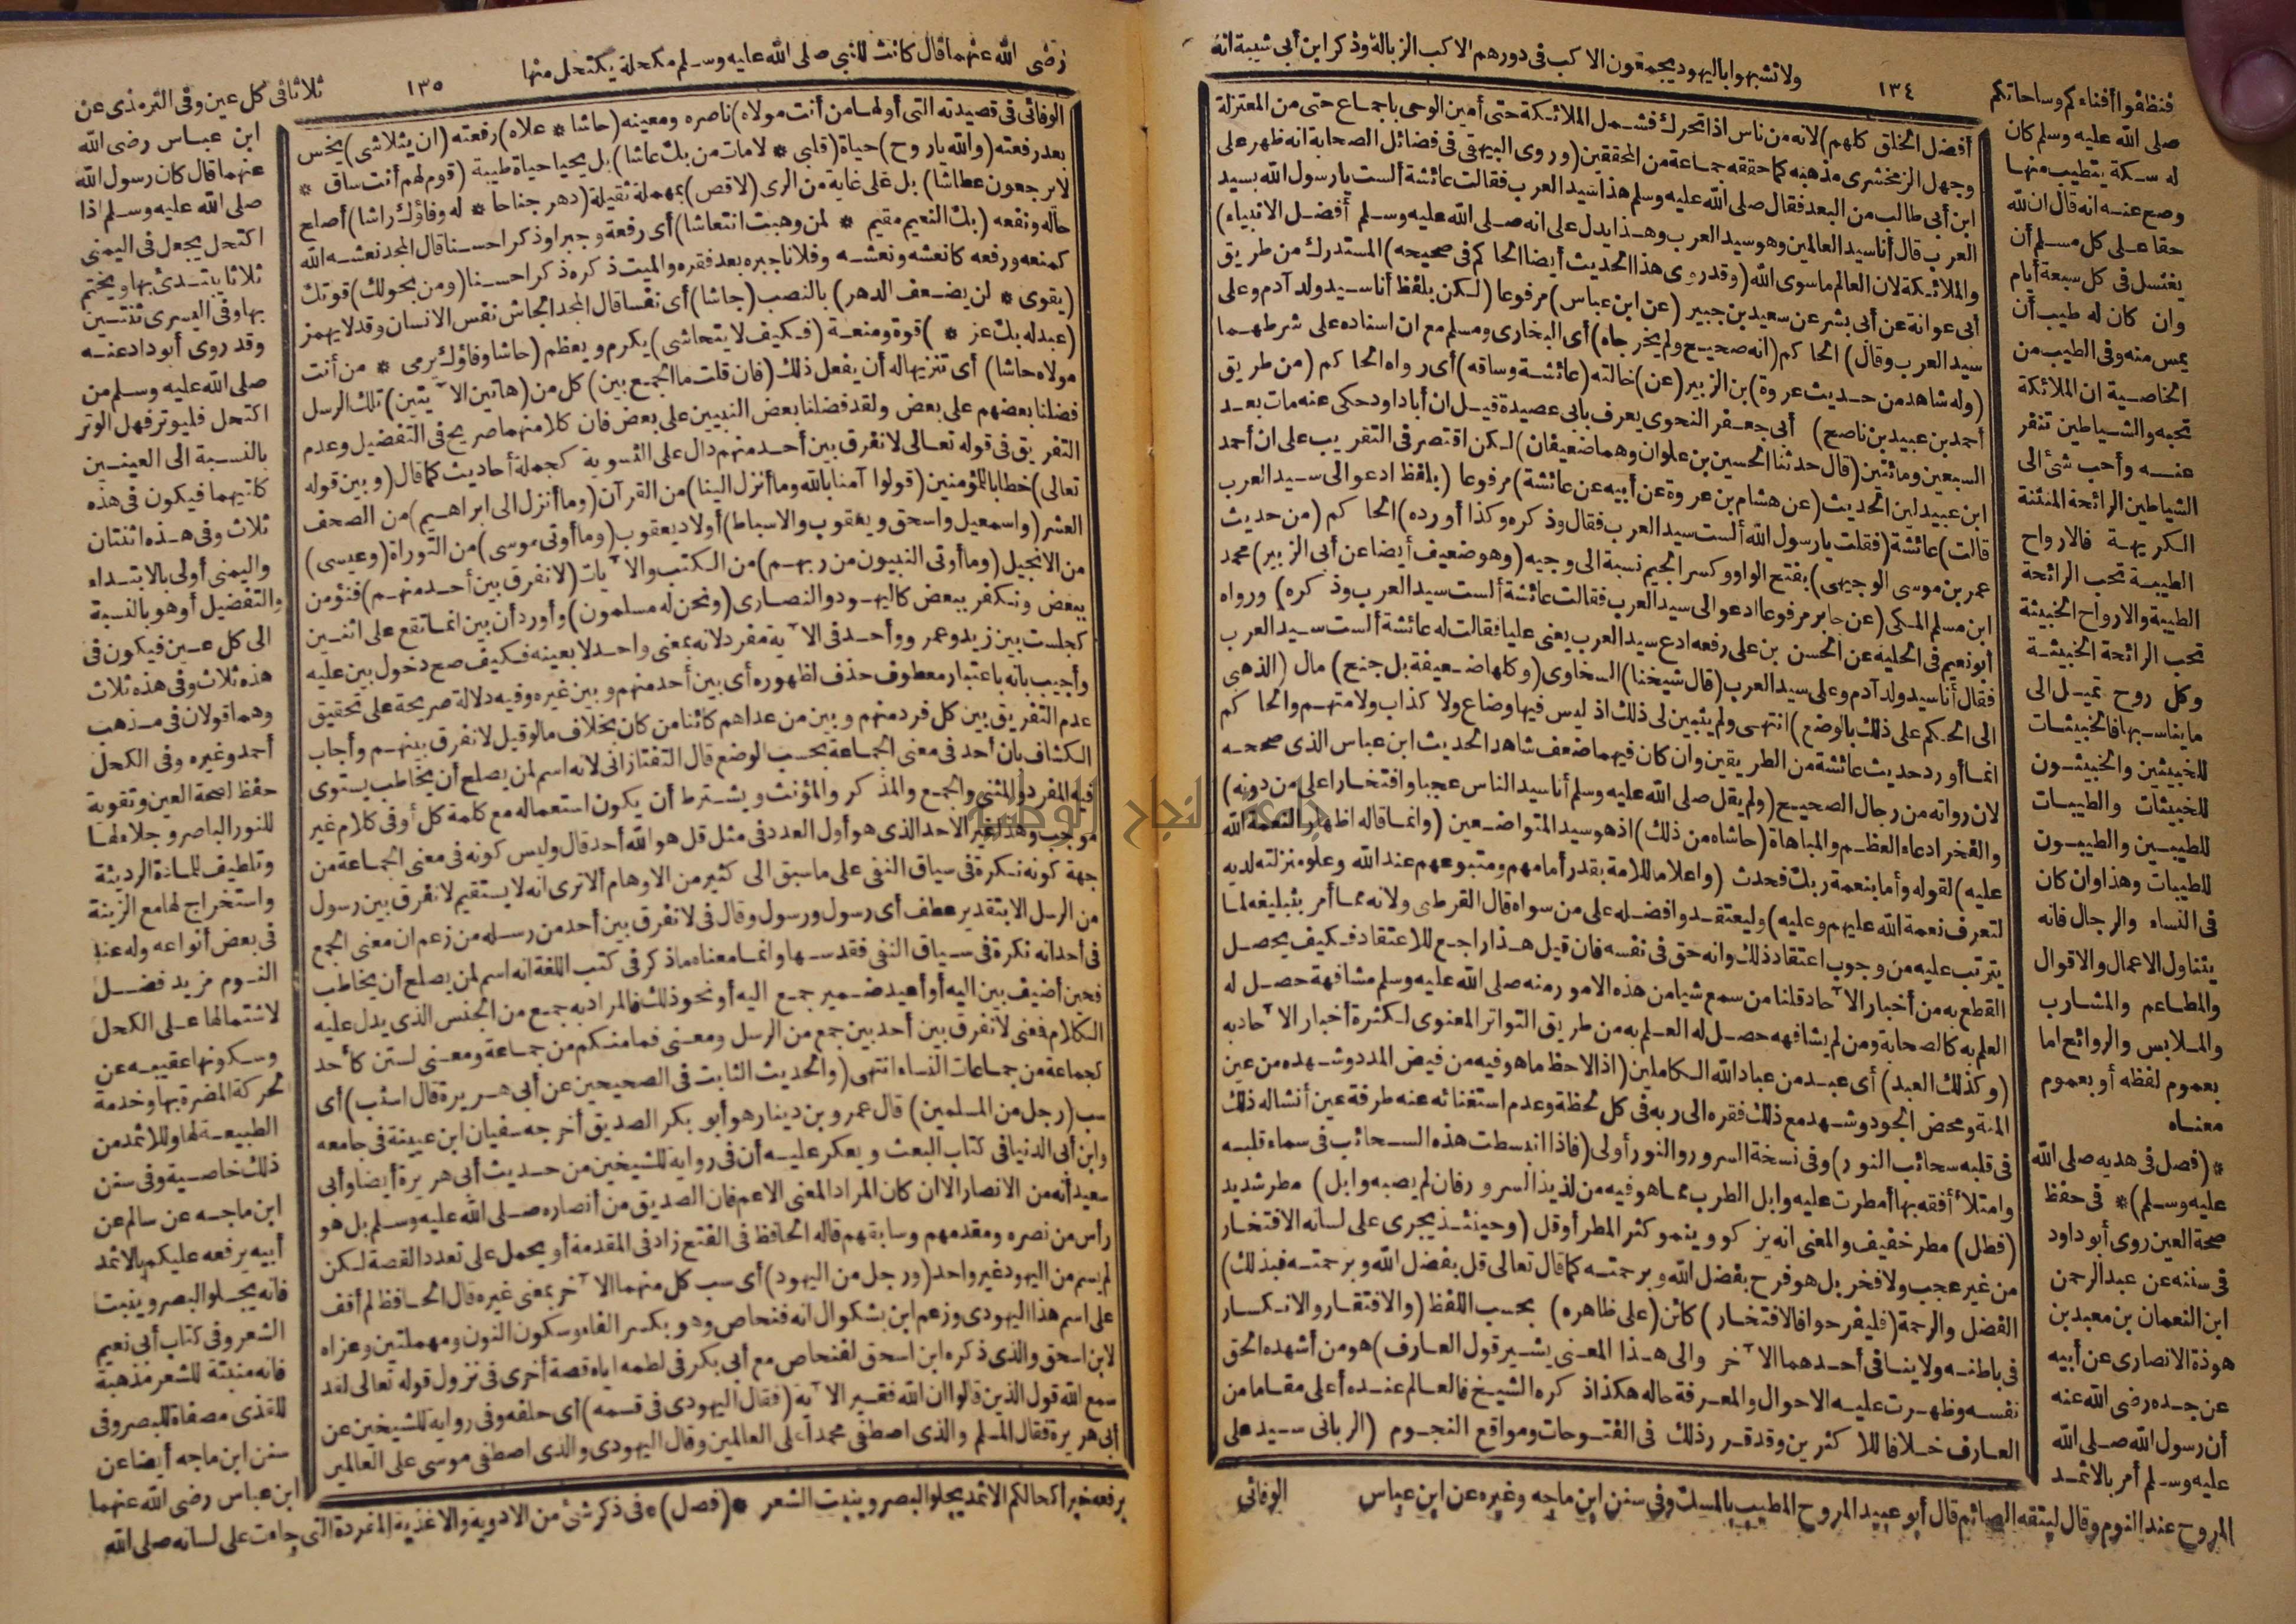 ولا تشبهوا باليهود يجمعون الاكب في دورهم الاكب الزبالة وذكر ابن أبي شيبة انه
١٣٤
فنظفوا أفناءكم وساحاتكم
صلى الله عليه وسلم كان
له سكة يتطيب منها
وصح عنه انه قال ان لله
حقا على كل مسلم أن
يغتسل في كل سبعة أيام
وان كان له طيب أن
يمس منه وفي الطيب من
الخاصية ان الملائكة
تحبه والشياطين تنفر
عنه وأحب شئ الى
الشياطين الرائحة المنتنة
الكريهة فالارواح
الطيبة تحب الرائحة
الطيبة والارواح الخبيثة
تحب الرائحة الخبيثة
وكل روح تميل الى
ما يناسبها فالخبيثات
للخبيثين والخبيثون
للخبيثات والطيبات
للطيبين والطيبون
للطيبات وهذا وان كان
في النساء والرجال فانه
يتناول الاعمال والاقوال
والمطاعم والمشارب
والملابس والروائح اما
بعموم لفظه أو بعموم
معناه
* (فصل في هديه صلى الله
عليه وسلم) * في حفظ
صحة العين روى أبو داود
في سننه عن عبد الرحمن
ابن النعمان بن معبد بن
هوذة الانصاري عن أبيه
عن جده رضي الله عنه
أن رسول الله صلى الله
عليه وسلم أمر بالاثمد
المروح عند النوم وقال ليتقه الصائم قال أبو عبيد المروح المطيب بالمسك وفي سنن ابن ماجه وغيره عن ابن عباس
أفضل الخلق كلهم) لانه من ناس اذا تحرك فشمل الملائكة حتى أمين الوحي باجماع حتى من المعتزلة
وجهل الزمخشري مذهبه كما حققه جماعة من المحققين (وروى البيهقي في فضائل الصحابة انه ظهر على
ابن أبي طالب من البعد فقال صلى الله عليه وسلم هذا سيد العرب فقالت عائشة ألست يا رسول الله بسيد
العرب قال أنا سيد العالمين وهو سيد العرب وهذا يدل على انه صلى الله عليه وسلم أفضل الانبياء)
والملائكة لان العالم ما سوى الله (وقد روى هذا الحديث أيضا الحاكم في صحيحه) المستدرك من طريق
أبي عوانة عن أبي بشر عن سعيد بن جبير (عن ابن عباس) مرفوعا (لكن بلفظ أنا سيد ولد آدم وعلي
سيد العرب وقال) الحاكم (انه صحيح ولم يخرجاه) أي البخاري ومسلم مع ان اسناده على شرطهما
(وله شاهد من حديث عروة) بن الزبير (عن) خالته (عائشة وساقه) أي رواه الحاكم (من طريق
أحمد بن عبيد بن ناصح) أبي جعفر النحوي يعرف بابي عصيدة قيل ان أبا داود حكى عنه مات بعد
السبعين ومائتين (قال حدثنا الحسين بن علوان وهما ضعيفان) لكن اقتصر في التقريب على ان أحمد
ابن عبيد لين الحديث (عن هشام بن عروة عن أبيه عن عائشة) مرفوعا (بلفظ ادعوا لي سيد العرب
قالت) عائشة (فقلت يا رسول الله ألست سيد العرب فقال وذكره وكذا أورده) الحاكم (من حديث
عمر بن موسى الوجيهي) بفتح الواو وكسر الجيم نسبة الى وجيه (وهو ضعيف أيضا عن أبي الزبير) محمد
ابن مسلم المكي (عن جابر مرفوعا ادعوا لي سيد العرب فقالت عائشة ألست سيد العرب وذكره) ورواه
أبو نعيم في الحلية عن الحسن بن علي رفعه ادع سيد العرب يعني عليا فقالت له عائشة ألست سيد العرب
فقال أنا سيد ولد آدم وعلي سيد العرب (قال شيخنا) السخاوي (وكلها ضعيفة بل جنح) مال (الذهبي
الى الحكم على ذلك بالوضع) انتهى ولم يتبين لي ذلك اذ ليس فيها وضاع ولا كذاب ولا متهم والحاكم
انما أورد حديث عائشة من الطريقين وان كان فيهما ضعف شاهد الحديث ابن عباس الذي صححه
لان رواته من رجال الصحيح (ولم يقل صلى الله عليه وسلم أنا سيد الناس عجبا وافتخارا على من دونه)
والفخر ادعاء العظم والمباهاة (حاشاه من ذلك) اذ هو سيد المتواضعين (وانما قاله اظهارا لنعمة الله
عليه) لقوله وأما بنعمة ربك فحدث (واعلاما للامة بقدر أمامهم ومتبوعهم عند الله وعلو منزلته لديه
لتعرف نعمة الله عليهم وعليه) وليعتقدوا فضله على من سواه قال القرطبي ولانه مما أمر بتبليغه لما
يترتب عليه من وجوب اعتقاد ذلك وانه حق في نفسه فان قيل هذا راجع للاعتقاد فكيف يحصل
القطع به من أخبار الآحاد قلنا من سمع شيا من هذه الامور منه صلى الله عليه وسلم مشافهة حصل له
العلم به كالصحابة ومن لم يشافهه حصل له العلم به من طريق التواتر المعنوي لكثرة أخبار الآحاد به
(وكذلك العبد) أي عبد من عباد الله الكاملين (اذا لاحظ ما هو فيه من فيض المدد وشهده من عين
المنة ومحض الجود وشهد مع ذلك فقره الى ربه في كل لحظة وعدم استغنائه عنه طرفة عين أنشأ له ذلك
في قلبه سحائب النور) وفي نسخة السرور والنور أولى (فاذا انبسطت هذه السحائب في سماء قلبه
وامتلأ أفقه بها أمطرت عليه وابل الطرب مما هو فيه من لذيذ السرور فان لم يصبه وابل) مطر شديد
(فطل) مطر خفيف والمعنى انه يزكو وينمو كثر المطر أو قل (وحينئذ يجري على لسانه الافتخار
من غير عجب ولا فخر بل هو فرح بفضل الله وبرحمته كما قال تعالى قل بفضل الله وبرحمته فبذلك)
الفضل والرحمة (فليفرحوا فالافتخار) كائن (على ظاهره) بحسب اللفظ (والافتقار والانكسار
في باطنه ولا ينافي أحدهما الآخر والى هذا المعنى يشير قول العارف) هو من أشهده الحق
نفسه وظهرت عليه الاحوال والمعرفة حاله هكذا ذكره الشيخ فالعالم عنده أعلى مقاما من
العارف خلافا للاكثرين وقد قرر ذلك في الفتوحات ومواقع النجوم (الرباني سيد علي
الوفائي
رضي الله عنهما قال كانت للنبي صلى الله عليه وسلم مكحلة يكتحل منها
١٣٥
ثلاثا في كل عين وفي الترمذي عن
الوفائي في قصيدته التي أولها من أنت مولاه) ناصره ومعينه (حاشا * علاه) رفعته (ان يتلاشى) يخس
بعد رفعته (والله يا روح) حياة (قلبي * لا مات من بك عاشا) بل يحيا حياة طيبة (قوم لهم أنت ساق *
لا يرجعون عطاشا) بل على غاية من الري (لا قص) بمهملة ثقيلة (دهر جناحا * له وفاؤك راشا) أصلح
حاله ونفعه (بك النعيم مقيم * لمن وهبت انتعاشا) أي رفعة وجبرا وذكرا حسنا قال المجد نعشه الله
كمنعه ورفعه كانعشه ونعشه وفلانا جبره بعد فقره والميت ذكره ذكرا حسنا (ومن بحولك) قوتك
(يقوى * لن يضعف الدهر) بالنصب (جاشا) أي نفسا قال المجد الجاش نفس الانسان وقد لا يهمز
(عبد له بك عز * ) قوة ومنعة (فكيف لا يتحاشى) يكرم ويعظم (حاشا وفاؤك يرمى * من أنت
مولاه حاشا) أي تنزيها له أن يفعل ذلك (فان قلت ما الجمع بين) كل من (هاتين الآيتين) تلك الرسل
فضلنا بعضهم على بعض ولقد فضلنا بعض النبيين على بعض فان كلا منهما صريح في التفضيل وعدم
التفريق في قوله تعالى لا نفرق بين أحد منهم دال على التسوية كجملة أحاديث كما قال (وبين قوله
تعالى) خطابا للمؤمنين (قولوا آمنا بالله وما أنزل الينا) من القرآن (وما أنزل الى ابراهيم) من الصحف
العشر (واسمعيل واسحق ويعقوب والاسباط) أولاد يعقوب (وما أوتي موسى) من التوراة (وعيسى)
من الانجيل (وما أوتي النبيون من ربهم) من الكتب والآيات (لا نفرق بين أحد منهم) فنؤمن
ببعض ونكفر ببعض كاليهود والنصارى (ونحن له مسلمون) وأورد أن بين انما تقع على اثنين
كجلست بين زيد وعمر وواحد في الآية مفرد لانه بمعنى واحد لا بعينه فكيف صح دخول بين عليه
وأجيب بانه باعتبار معطوف حذف لظهوره أي بين أحد منهم وبين غيره وفيه دلالة صريحة على تحقيق
عدم التفريق بين كل فرد منهم وبين من عداهم كائنا من كان بخلاف ما لو قيل لا نفرق بينهم وأجاب
الكشاف بان أحد في معنى الجماعة بحسب الوضع قال التفتازاني لانه اسم لمن يصلح أن يخاطب يستوي
فيه المفرد والمثنى والجمع والمذكر والمؤنث ويشترط أن يكون استعماله مع كلمة كل أو في كلام غير
موجب وهذا غير الاحد الذي هو أول العدد في مثل قل هو الله أحد قال وليس كونه في معنى الجماعة من
جهة كونه نكرة في سياق النفي على ما سبق الى كثير من الاوهام ألا ترى انه لا يستقيم لا نفرق بين رسول
من الرسل الا بتقدير عطف أي رسول ورسول وقال في لا نفرق بين أحد من رسله من زعم ان معنى الجمع
في أحد انه نكرة في سياق النفي فقد سها وانما معناه ما ذكر في كتب اللغة انه اسم لمن يصلح أن يخاطب
فحين أضيف بين اليه أو أعيد ضمير جمع اليه أو نحو ذلك فالمراد به جمع من الجنس الذي يدل عليه
الكلام فمعنى لا نفرق بين أحد بين جمع من الرسل ومعنى فما منكم من جماعة ومعنى لستن كأحد
كجماعة من جماعات النساء انتهى (والحديث الثابت في الصحيحين عن أبي هريرة قال استب) أي
سب (رجل من المسلمين) قال عمرو بن دينار هو أبو بكر الصديق أخرجه سفيان ابن عيينة في جامعه
وابن أبي الدنيا في كتاب البعث ويعكر عليه أن في رواية للشيخين من حديث أبي هريرة أيضا وأبي
سعيد أنه من الانصار الا ان كان المراد المعنى الاعم فان الصديق من أنصاره صلى الله عليه وسلم بل هو
رأس من نصره ومقدمهم وسابقهم قاله الحافظ في الفتح زاد في المقدمة أو يحمل على تعدد القصة لكن
لم يسم من اليهود غير واحد (ورجل من اليهود) أي سب كل منهما الآخر بمعنى غيره قال الحافظ لم أقف
على اسم هذا اليهودي وزعم ابن بشكوال انه فنحاص وهو بكسر الفاء وسكون النون ومهملتين وعزاه
لابن اسحق والذي ذكره ابن اسحق لفنحاص مع أبي بكر في لطمه اياه قصة أخرى في نزول قوله تعالى لقد
سمع الله قول الذين قالوا ان الله فقير الآية (فقال اليهودي في قسمه) أي حلفه وفي رواية للشيخين عن
أبي هريرة فقال المسلم والذي اصطفى محمدا على العالمين وقال اليهودي والذي اصطفى موسى على العالمين
ابن عباس رضي الله
عنهما قال كان رسول الله
صلى الله عليه وسلم اذا
اكتحل يجعل في اليمنى
ثلاثا يبتدئ بها ويختم
بها وفي اليسرى ثنتين
وقد روى أبو داد عنه
صلى الله عليه وسلم من
اكتحل فليوتر فهل الوتر
بالنسبة الى العينين
كلتيهما فيكون في هذه
ثلاث وفي هذه اثنتان
واليمنى أولى بالابتداء
والتفضيل أو هو بالنسبة
الى كل عين فيكون في
هذه ثلاث وفي هذه ثلاث
وهما قولان في مذهب
أحمد وغيره وفي الكحل
حفظ لصحة العين وتقوية
للنور الباصر وجلاء لها
وتلطيف للمادة الرديئة
واستخراج لها مع الزينة
في بعض أنواعه وله عند
النوم مزيد فضل
لاشتمالها على الكحل
وسكونها عقيبه عن
الحركة المضرة بها وخدمة
الطبيعة لها وللاثمد من
ذلك خاصية وفي سنن
ابن ماجه عن سالم عن
أبيه يرفعه عليكم بالاثمد
فانه يجلو البصر وينبت
الشعر وفي كتاب أبي نعيم
فانه منبتة للشعر مذهبة
للقذى مصفاة للبصر وفي
سنن ابن ماجه أيضا عن
ابن عباس رضي الله عنهما
يرفعه خير أكحالكم الاثمد يجلو البصر وينبت الشعر * (فصل) * في ذكر شئ من الادوية والاغذية المفردة التي جاءت على لسانه صلى الله
جامعة النجاح الوطنية